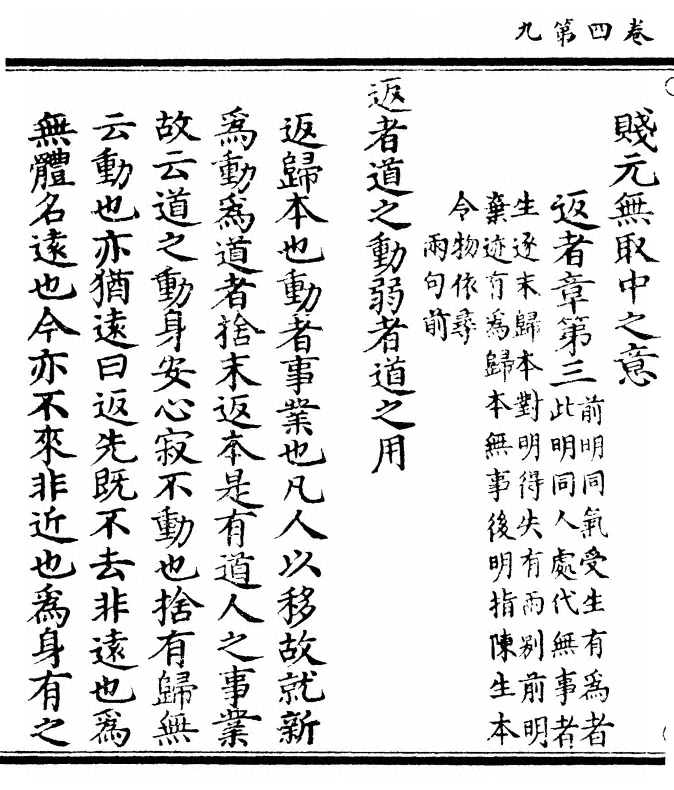 卷四第九
賤元無取中之意
返者章第三
前明同氣受生有為者
此明同人處代無事者
生逐末歸本對明得失有兩别前明
棄迹有為歸本無事後明指陳生本
令物依尋
兩句前
返者道之動弱者道之用
返歸本也動者事業也凡人以移故就新
爲動爲道者捨末返本是有道人之事業
故云道之動身安心寂不動也捨有歸無
云動也亦猶遠曰返先既不去非遠也爲
無體名遠也今亦不來非近也爲身有之